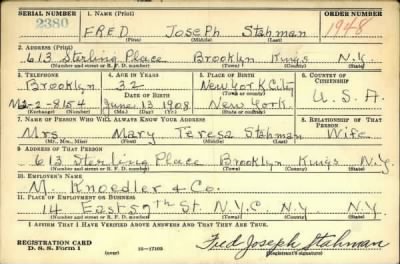 SERIAL NUMBER 1. NAME (Print) ORDER NUMBER
2380 FRED Joseph Stahman 1948
(First) (Middle) (Last)
2. ADDRESS (Print)
613 Sterling Place Brooklyn Kings N.Y.
(Number and street or R. F. D. number) (Town) (County) (State)
3. TELEPHONE 4. AGE IN YEARS 5. PLACE OF BIRTH 6. COUNTRY OF CITIZENSHIP
Brooklyn 32 New York City
DATE OF BIRTH (Town or county)
2-8154 June 13 1908 New York. U.S.A.
(Exchange) (Number) (Mo.) (Day) (Yr.) (State or country)
7. NAME OF PERSON WHO WILL ALWAYS KNOW YOUR ADDRESS 8. RELATIONSHIP OF THAT PERSON
Mrs Mary Teresa Stahman Wife
(Mr., Mrs., Miss) (First) (Middle) (Last)
9. ADDRESS OF THAT PERSON
613 Sterling Place Brooklyn Kings N.Y.
(Number and street or R. F. D. number) (Town) (County) (State)
10. EMPLOYER'S NAME
M. Knoedler & Co.
11. PLACE OF EMPLOYMENT OR BUSINESS
14 East 57th St. N.Y.C N.Y. N.Y.
(Number and street or R. F. D. number) (Town) (County) (State)
I AFFIRM THAT I HAVE VERIFIED ABOVE ANSWERS AND THAT THEY ARE TRUE.
REGISTRATION CARD
D. S. S. Form 1 (over) 16-17105 Fred Joseph Stahman
(Registrant's signature)